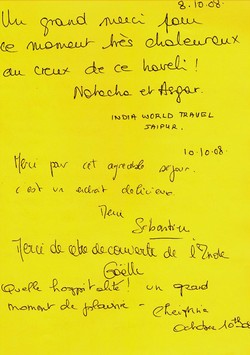 8.10.08.
Un grand merci pour
ce moment très chaleureux
au creux de ce haveli !
Natacha et Asgar.
INDIA WORLD TRAVEL
JAIPUR.
10.10.08.
Merci par cet agreable sejour.
c'est un endroit delicieux
Merci
Sebastien
Merci de cette decouverte de l'Inde
Gaëlle
Quelle hospitalité ! un grand
moment de plaisir -
October 10th 08